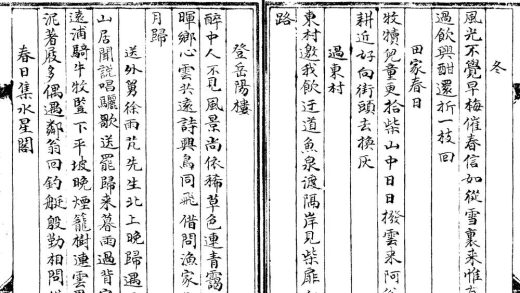 冬
風光不覺早梅催春信如從雪裏來惟
過飲興酣還折一枝回
田家春日
牧犢兒童更拾柴山中日日撥雲來阿
耕近好向街頭去換灰
過東村
東村邀我飲迂道魚泉渡隔岸見柴扉
路
登岳陽樓
醉中人不見風景尚依稀草色連青靄
暉鄉心雲共遠詩興鳥同飛借問漁家
月歸
送外舅徐雨芃先生北上晚歸遇
山居聞說唱驪歌送罷歸來暮雨過背
遠浦騎牛牧豎下平坡晚煙籠樹連雲
沉著屐多偶遇鄰翁回釣艇殷勤相問
春日集水星閣